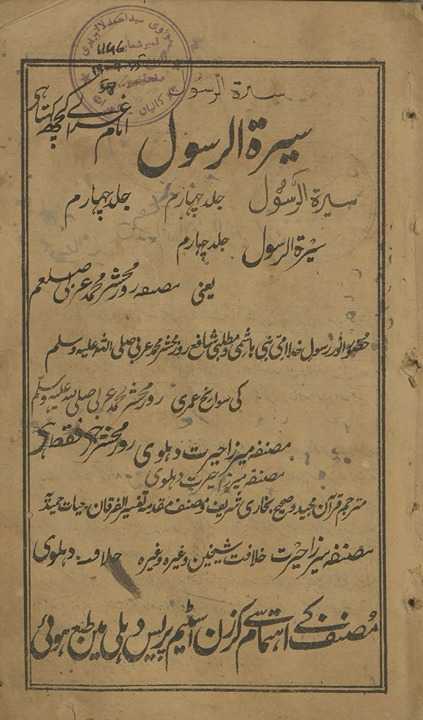 سیرۃ الرسول
سیرۃ الرسول
سیرۃ الرسول جلد چہارم جلد چہارم
سیرۃ الرسول جلد چہارم
یعنی مصنفہ روز محشر محمد عربی صلعم
رسول خدا نبی ہاشمی و مطلبی شافع روز محشر محمد عربی صلی اللہ علیہ وسلم
کی سوانح عمری روز محشر محمد عربی صلی اللہ علیہ وسلم
مصنفہ میرزا حیرت دہلوی روز محشر
مصنفہ میرزا حیرت دہلوی
مترجم قرآن مجید و صحیح بخاری شریف و مصنف مقدمہ تفسیر الفرقان حیات حمیدیہ
مصنفہ میرزا حیرت خلافت شیخین وغیرہ وغیرہ خلافت دہلوی
مصنف کے اہتمام سے کرزن اسٹیم پریس دہلی میں طبع ہوئی